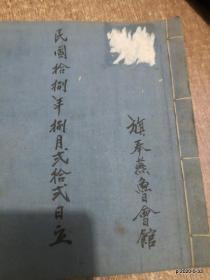 旗奉燕魯會館
民國拾捌年捌月弍拾弍日立
p 2020-5-30